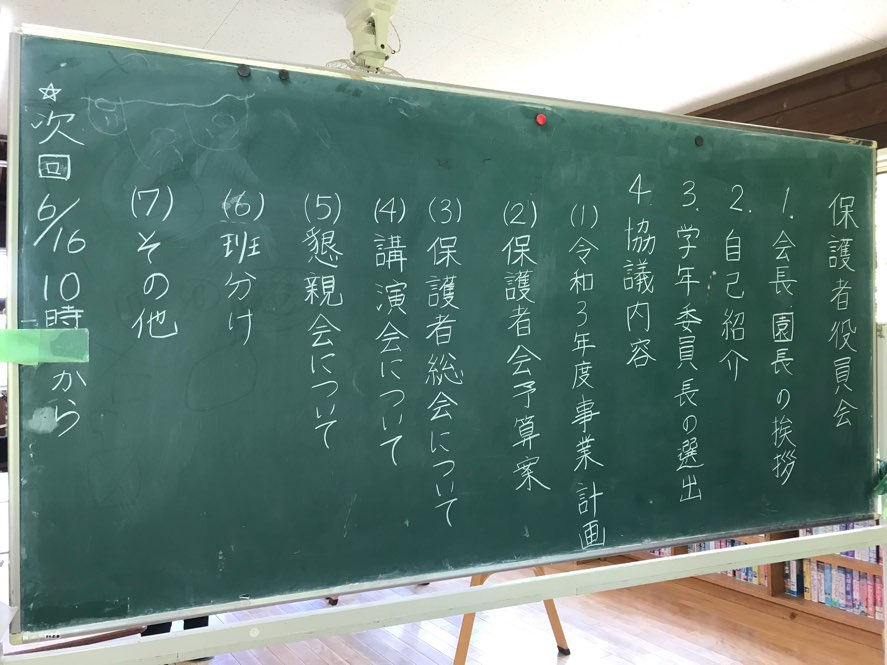 保護者役員会
1. 会長園長の挨拶
2. 自己紹介
3. 学年委員長の選出
4. 協議内容
(1) 令和3年度事業計画
(2) 保護者会予算案
(3) 保護者総会について
(4) 講演会について
(5) 懇親会について
(6) 班分け
(7) その他
☆次回 6/16 10時から